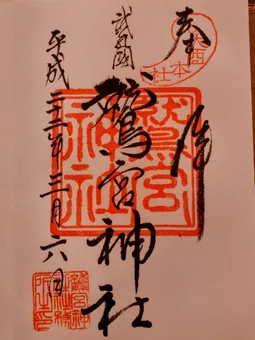 奉拝
武蔵國
鷲宮神社
平成二十二年三月六日
鷲宮
神社
鷲宮神
社社務
所之印